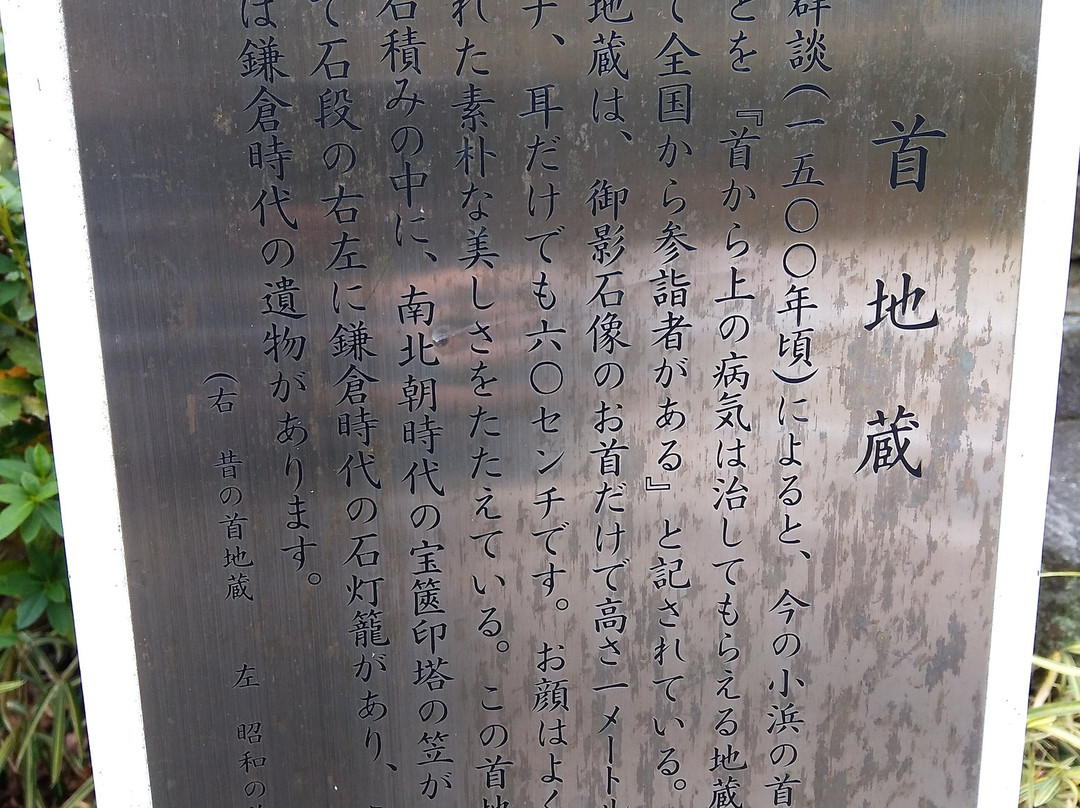 首地蔵
群談(一五〇〇年頃)によると、今の小浜の首
とを『首から上の病気は治してもらえる地蔵
て全国から参詣者がある』と記されている。
地蔵は、御影石像のお首だけで高さ一メートル
チ、耳だけでも六〇センチです。お顔はよく
れた素朴な美しさをたたえている。この首地
石積みの中に、南北朝時代の宝篋印塔の笠が
て石段の右左に鎌倉時代の石灯籠があり、
は鎌倉時代の遺物があります。
(右 昔の首地蔵 左 昭和の